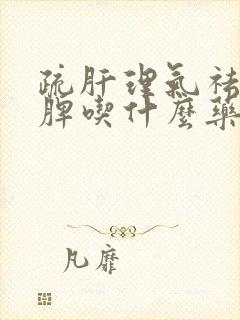 疏肝理气祛
脾喫什麼藥
凡靡